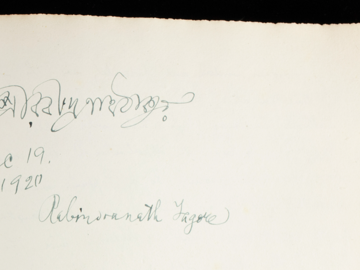 শ্রীরবীন্দ্রনাথ ঠাকুর
c 19.
1920
Rabindranath Tagore